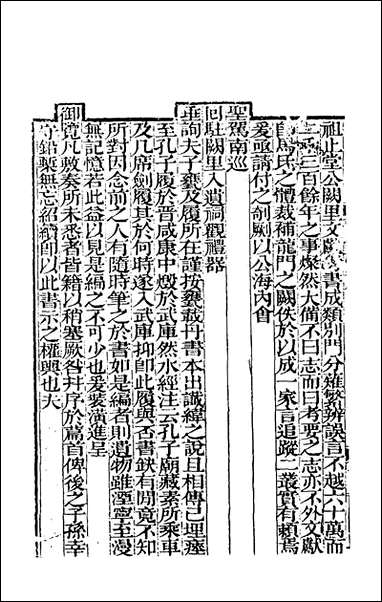 祖止堂公闕里文獻考書成類別門分雖繁辨誤言不越六十萬而
二千三百餘年之事燦然大備不曰志而曰考要之志亦不外文獻
自馬氏之體裁補龍門之闕佚於以成一家言追蹤二叢實有賴焉
爰亟請付之剞劂以公海內會
聖駕南巡
回駐闕里入遺祠觀禮器
垂詢夫子甕及履所在謹按甕載丹書本出讖緯之說且相傳已埋瘞
至孔子履於晉咸康中燬於武庫然水經注云孔子廟藏素所乘車
及几席劍履其於何時遂入武庫抑卽此履與否書缺有閒竟不知
所對因念前之人有隨時筆之於書如是編者則遺物雖湮寧至漫
無記憶若此益以見是編之不可少也爰裝潢進呈
御覽凡敕奏所未悉者皆籍以稍塞厥咎幷序於篇首俾後之子孫幸
守鉛槧無忘紹緒卽以此書示之權輿也夫